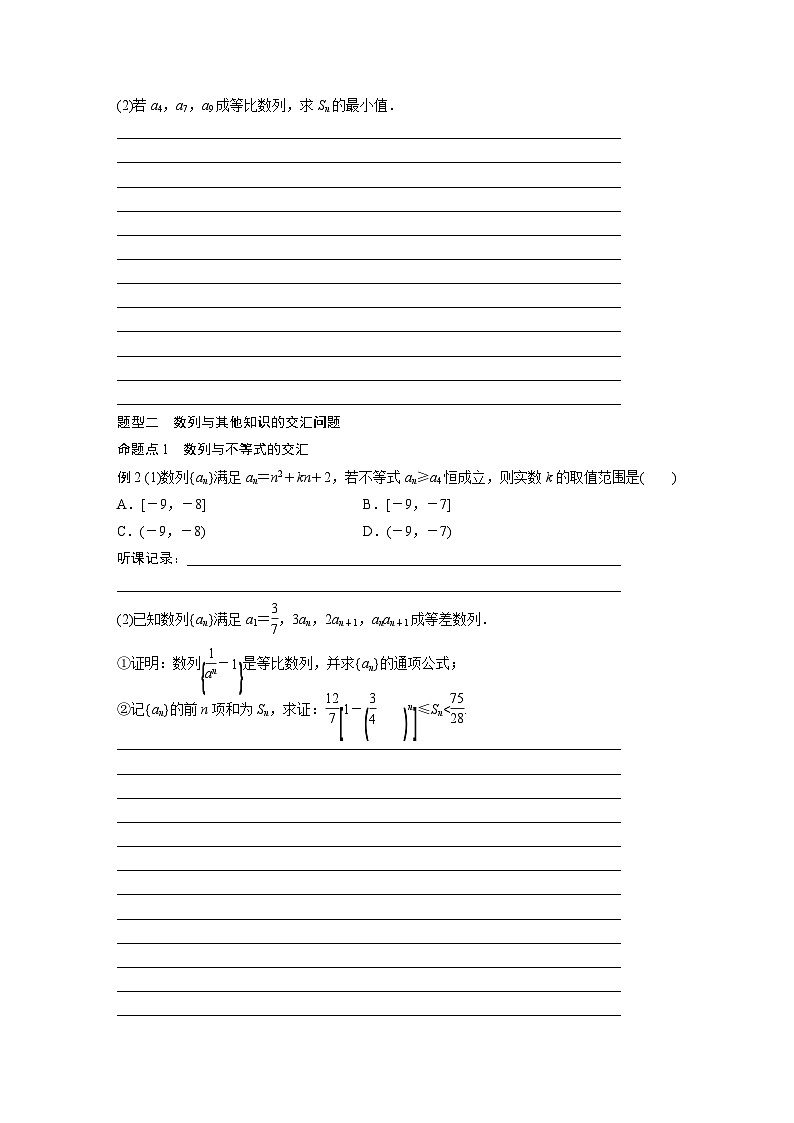 (2)若a₄，a₇，a₉成等比数列，求Sₙ的最小值．
题型二　数列与其他知识的交汇问题
命题点1　数列与不等式的交汇
例2 (1)数列{aₙ}满足aₙ＝n²＋kn＋2，若不等式aₙ≥a₄恒成立，则实数k的取值范围是(　　)
A．[－9，－8]　　B．[－9，－7]
C．(－9，－8)　　D．(－9，－7)
听课记录：
(2)已知数列{aₙ}满足a₁＝3/7，3aₙ，2aₙ₊₁，aₙaₙ₊₁成等差数列．
①证明：数列{1/aⁿ－1}是等比数列，并求{aₙ}的通项公式；
②记{aₙ}的前n项和为Sₙ，求证：12/7[1－(3/4)ⁿ]≤Sₙ<75/28.